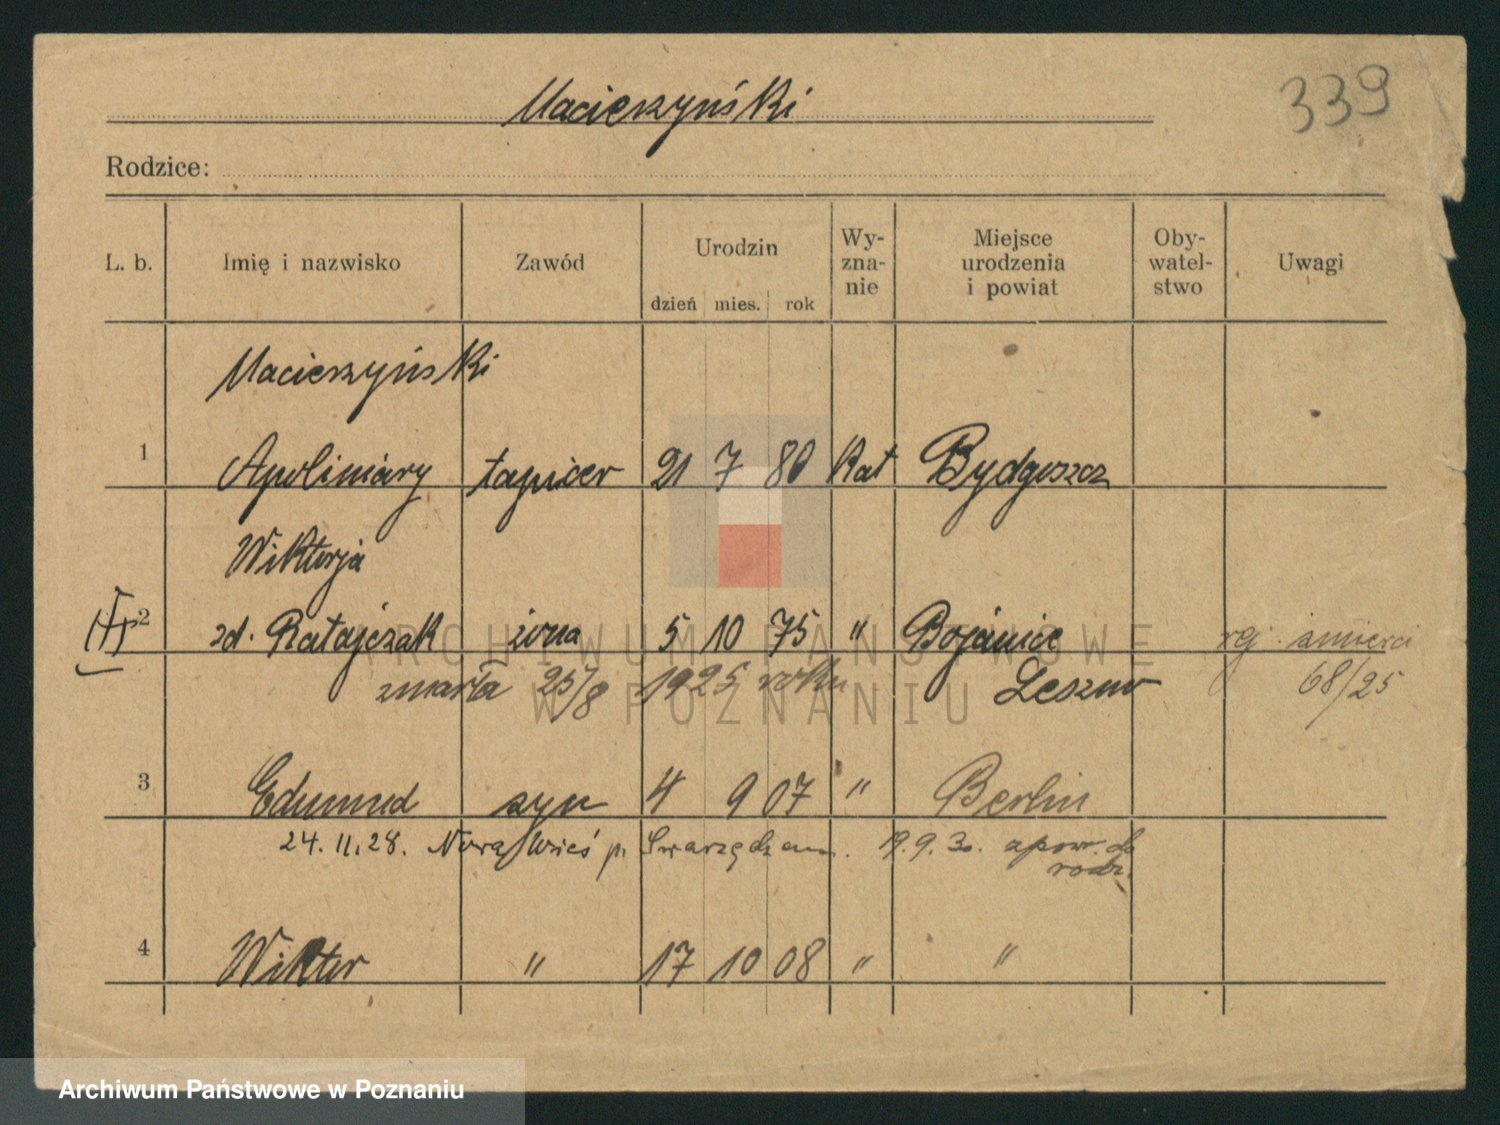 Macierzyński
339
Rodzice:
L. b. Imię i nazwisko Zawód Urodzin dzień mies. rok Wy-zna-nie Miejsce urodzenia i powiat Oby-watel-stwo Uwagi
Macierzyński
1 Apoliniary tapicer 21 7 80 Kat Bydgoszcz
Wiktorja
2 zd. Ratajczak żona 5 10 75 " Bojanice rej. śmierci
zmarła 25/8 1925 roku Leszno 68/25
3 Edmund syn 4 9 07 " Berlin
24. 11. 28. Nowa Wieś p. Swarzędzem. 19. 9. 30. zpowr. do
rodz.
4 Wiktor " 17 10 08 " "
ARCHIWUM PAŃSTWOWE
W POZNANIU
Archiwum Państwowe w Poznaniu